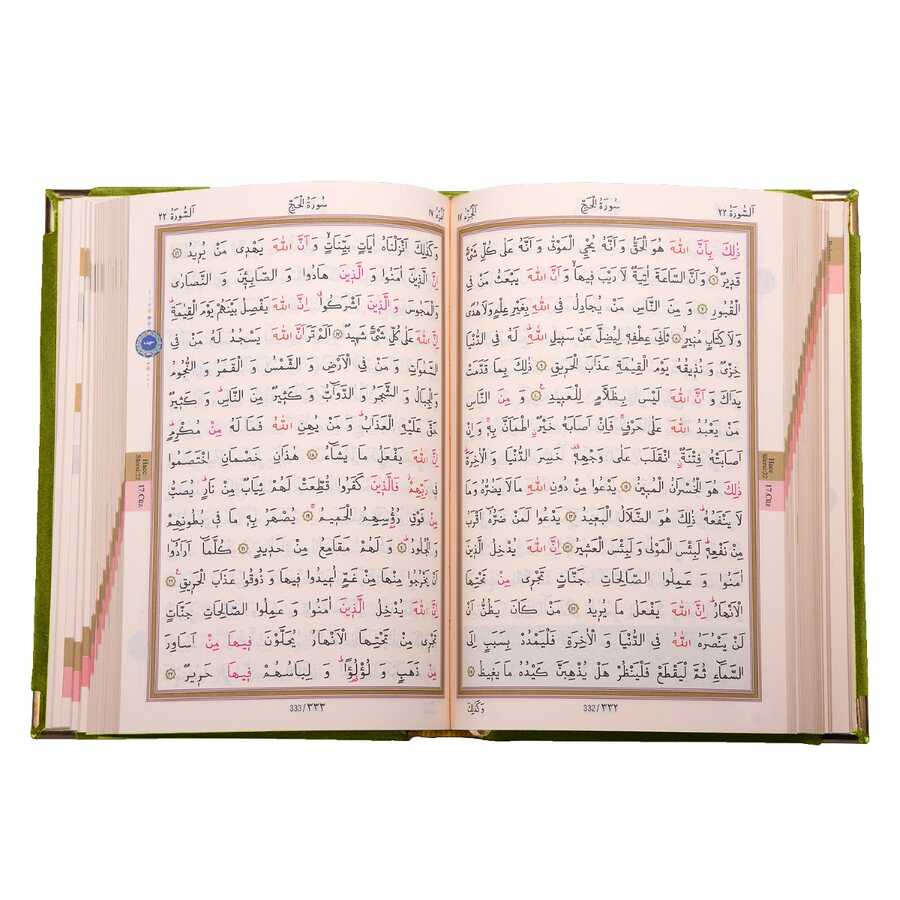 اَلسُّورَةُ ٢٢
سُورَةُ الْحَجِّ
اَلْجُزْءُ ١٧
ذٰلِكَ بِاَنَّ اللّٰهَ هُوَ الْحَقُّ وَاَنَّهُ يُحْيِ الْمَوْتٰى وَاَنَّهُ عَلٰى كُلِّ شَيْءٍ
قَدٖيرٌ ٦ وَاَنَّ السَّاعَةَ اٰتِيَةٌ لَا رَيْبَ فٖيهَا وَاَنَّ اللّٰهَ يَبْعَثُ مَنْ فِي
الْقُبُورِ ٧ وَ مِنَ النَّاسِ مَنْ يُجَادِلُ فِي اللّٰهِ بِغَيْرِ عِلْمٍ وَلَا هُدًى
وَلَا كِتَابٍ مُنٖيرٍ ٨ ثَانِيَ عِطْفِهٖ لِيُضِلَّ عَنْ سَبٖيلِ اللّٰهِ لَهُ فِي الدُّنْيَا
خِزْيٌ وَ نُذٖيقُهُ يَوْمَ الْقِيٰمَةِ عَذَابَ الْحَرٖيقِ ٩ ذٰلِكَ بِمَا قَدَّمَتْ
يَدَاكَ وَ اَنَّ اللّٰهَ لَيْسَ بِظَلَّامٍ لِلْعَبٖيدِ ١٠ وَ مِنَ النَّاسِ
مَنْ يَعْبُدُ اللّٰهَ عَلٰى حَرْفٍ فَاِنْ اَصَابَهُ خَيْرٌ اطْمَاَنَّ بِهٖ وَاِنْ
اَصَابَتْهُ فِتْنَةٌ انْقَلَبَ عَلٰى وَجْهِهٖ خَسِرَ الدُّنْيَا وَ الْاٰخِرَةَ
ذٰلِكَ هُوَ الْخُسْرَانُ الْمُبٖينُ ١١ يَدْعُوا مِنْ دُونِ اللّٰهِ مَا لَا يَضُرُّهُ وَمَا
لَا يَنْفَعُهُ ذٰلِكَ هُوَ الضَّلَالُ الْبَعٖيدُ ١٢ يَدْعُوا لَمَنْ ضَرُّهُ اَقْرَبُ
مِنْ نَفْعِهٖ لَبِئْسَ الْمَوْلٰى وَلَبِئْسَ الْعَشٖيرُ ١٣ اِنَّ اللّٰهَ يُدْخِلُ الَّذٖينَ
اٰمَنُوا وَ عَمِلُوا الصَّالِحَاتِ جَنَّاتٍ تَجْرٖي مِنْ تَحْتِهَا
الْاَنْهَارُ اِنَّ اللّٰهَ يَفْعَلُ مَا يُرٖيدُ ١٤ مَنْ كَانَ يَظُنُّ اَنْ
لَنْ يَنْصُرَهُ اللّٰهُ فِي الدُّنْيَا وَ الْاٰخِرَةِ فَلْيَمْدُدْ بِسَبَبٍ اِلَى
السَّمَاءِ ثُمَّ لْيَقْطَعْ فَلْيَنْظُرْ هَلْ يُذْهِبَنَّ كَيْدُهُ مَا يَغٖيظُ ١٥
وَكَذٰلِكَ
332/٣٣٢
اَلْجُزْءُ ١٧
سُورَةُ الْحَجِّ
اَلسُّورَةُ ٢٢
وَكَذٰلِكَ اَنْزَلْنَاهُ اٰيَاتٍ بَيِّنَاتٍ وَ اَنَّ اللّٰهَ يَهْدٖي مَنْ يُرٖيدُ ١٦
اِنَّ الَّذٖينَ اٰمَنُوا وَ الَّذٖينَ هَادُوا وَ الصَّابِئٖينَ وَ النَّصَارٰى
وَالْمَجُوسَ وَ الَّذٖينَ اَشْرَكُوا اِنَّ اللّٰهَ يَفْصِلُ بَيْنَهُمْ يَوْمَ الْقِيٰمَةِ
اِنَّ اللّٰهَ عَلٰى كُلِّ شَيْءٍ شَهٖيدٌ ١٧ اَلَمْ تَرَ اَنَّ اللّٰهَ يَسْجُدُ لَهُ مَنْ فِي
السَّمٰوَاتِ وَ مَنْ فِي الْاَرْضِ وَ الشَّمْسُ وَ الْقَمَرُ وَ النُّجُومُ
وَالْجِبَالُ وَ الشَّجَرُ وَ الدَّوَابُّ وَ كَثٖيرٌ مِنَ النَّاسِ وَ كَثٖيرٌ
حَقَّ عَلَيْهِ الْعَذَابُ وَ مَنْ يُهِنِ اللّٰهُ فَمَا لَهُ مِنْ مُكْرِمٍ
اِنَّ اللّٰهَ يَفْعَلُ مَا يَشَاءُ ١٨ هٰذَانِ خَصْمَانِ اخْتَصَمُوا
فٖي رَبِّهِمْ فَالَّذٖينَ كَفَرُوا قُطِّعَتْ لَهُمْ ثِيَابٌ مِنْ نَارٍ يُصَبُّ
مِنْ فَوْقِ رُؤُسِهِمُ الْحَمٖيمُ ١٩ يُصْهَرُ بِهٖ مَا فٖي بُطُونِهِمْ
وَالْجُلُودُ ٢٠ وَ لَهُمْ مَقَامِعُ مِنْ حَدٖيدٍ ٢١ كُلَّمَا اَرَادُوا
اَنْ يَخْرُجُوا مِنْهَا مِنْ غَمٍّ اُعٖيدُوا فٖيهَا وَ ذُوقُوا عَذَابَ الْحَرٖيقِ ٢٢
اِنَّ اللّٰهَ يُدْخِلُ الَّذٖينَ اٰمَنُوا وَ عَمِلُوا الصَّالِحَاتِ جَنَّاتٍ
تَجْرٖي مِنْ تَحْتِهَا الْاَنْهَارُ يُحَلَّوْنَ فٖيهَا مِنْ اَسَاوِرَ
مِنْ ذَهَبٍ وَ لُؤْلُؤًا وَ لِبَاسُهُمْ فٖيهَا حَرٖيرٌ ٢٣
333/٣٣٣
Hacc
Sûresi:22
17.Cüz
Hacc
Sûresi:22
17.Cüz